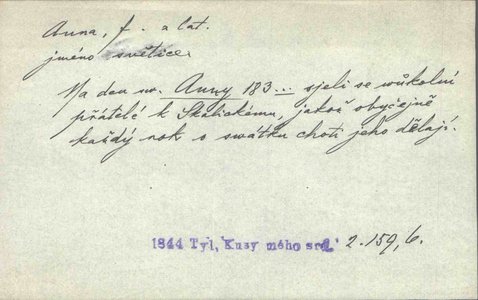 Anna, f. a lat.
jméno světice.
Na den sv. Anny 183... sjeli se wůkolní
přátelé k Skalickému, jakož obyčejně
každý rok o swátku choti jeho dělají.
1844 Tyl, Kusy mého srd. 2.159,6.